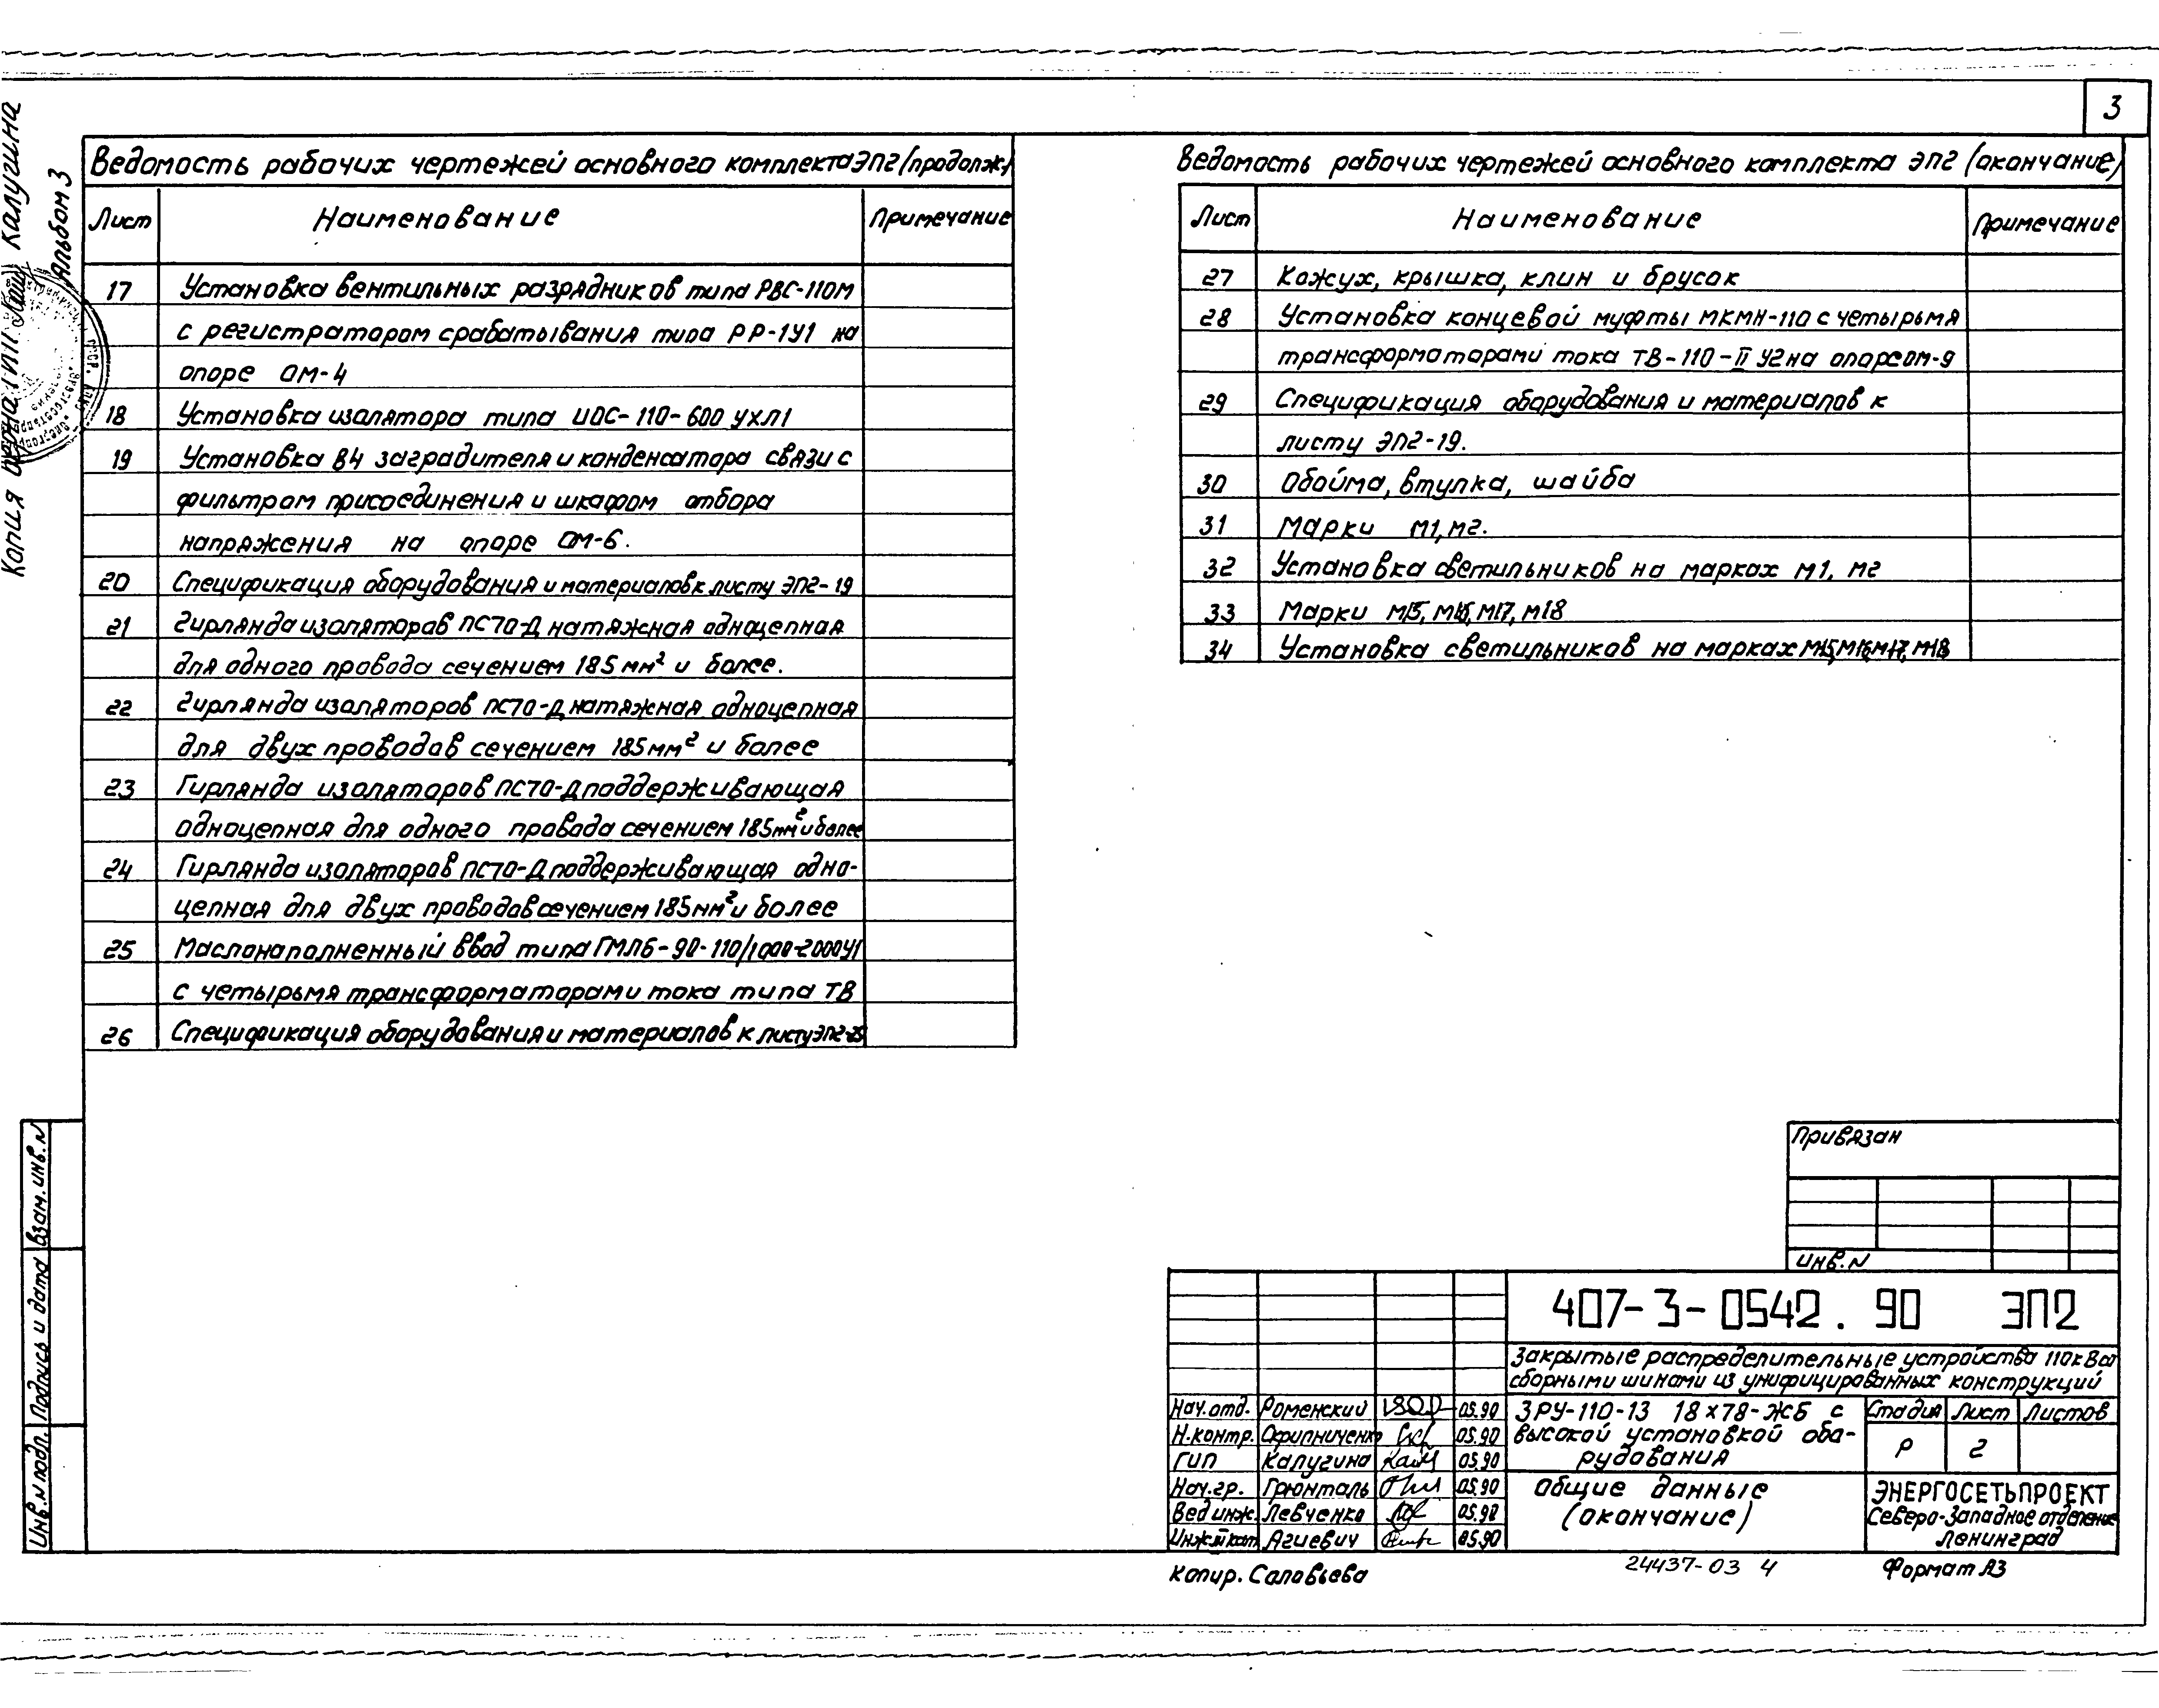 3
Копия верна ГИП Калугина
Альбом 3
Ведомость рабочих чертежей основного комплекта ЭП2 (продолж.)
Лист Наименование Примечание
17 Установка вентильных разрядников типа РВС-110М
с регистратором срабатывания типа РР-1У1 на
опоре ОМ-4
18 Установка изолятора типа ИОС-110-600 УХЛ1
19 Установка ВЧ заградителя и конденсатора связи с
фильтром присоединения и шкафом отбора
напряжения на опоре ОМ-6.
20 Спецификация оборудования и материалов к листу ЭП2-19
21 Гирлянда изоляторов ПС70-Д натяжная одноцепная
для одного провода сечением 185 мм² и более.
22 Гирлянда изоляторов ПС70-Д натяжная одноцепная
для двух проводов сечением 185 мм² и более
23 Гирлянда изоляторов ПС70-Д поддерживающая
одноцепная для одного провода сечением 185 мм² и более
24 Гирлянда изоляторов ПС70-Д поддерживающая одно-
цепная для двух проводов сечением 185 мм² и более
25 Маслонаполненный ввод типа ГМЛБ-90-110/1000-2000У1
с четырьмя трансформаторами тока типа ТВ
26 Спецификация оборудования и материалов к листу ЭП2-25
Ведомость рабочих чертежей основного комплекта ЭП2 (окончание)
Лист Наименование Примечание
27 Кожух, крышка, клин и брусок
28 Установка концевой муфты МКМН-110 с четырьмя
трансформаторами тока ТВ-110-II У2 на опоре ОМ-9
29 Спецификация оборудования и материалов к
листу ЭП2-19.
30 Обойма, втулка, шайба
31 Марки М1, М2.
32 Установка светильников на марках М1, М2
33 Марки М15, М16, М17, М18
34 Установка светильников на марках М15, М16, М17, М18
Привязан
Инв. N
407-3-0542.90 ЭП2
Закрытые распределительные устройства 110 кВ со
сборными шинами из унифицированных конструкций
Нач. отд. Роменский 05.90
Н. контр. Скрипниченко 05.90
ГИП Калугина 05.90
Нач. гр. Грюнталь 05.90
Вед инж. Левченко 05.90
Инж II кат Агиевич 05.90
ЗРУ-110-13 18×78-ЖБ с
высокой установкой обо-
рудования
Стадия Лист Листов
Р 2
Общие данные
(окончание)
ЭНЕРГОСЕТЬПРОЕКТ
Северо-Западное отделение
Ленинград
Копир. Соловьева
24437-03 4
Формат А3
Взам. инв. N
Подпись и дата
Инв. N подл.